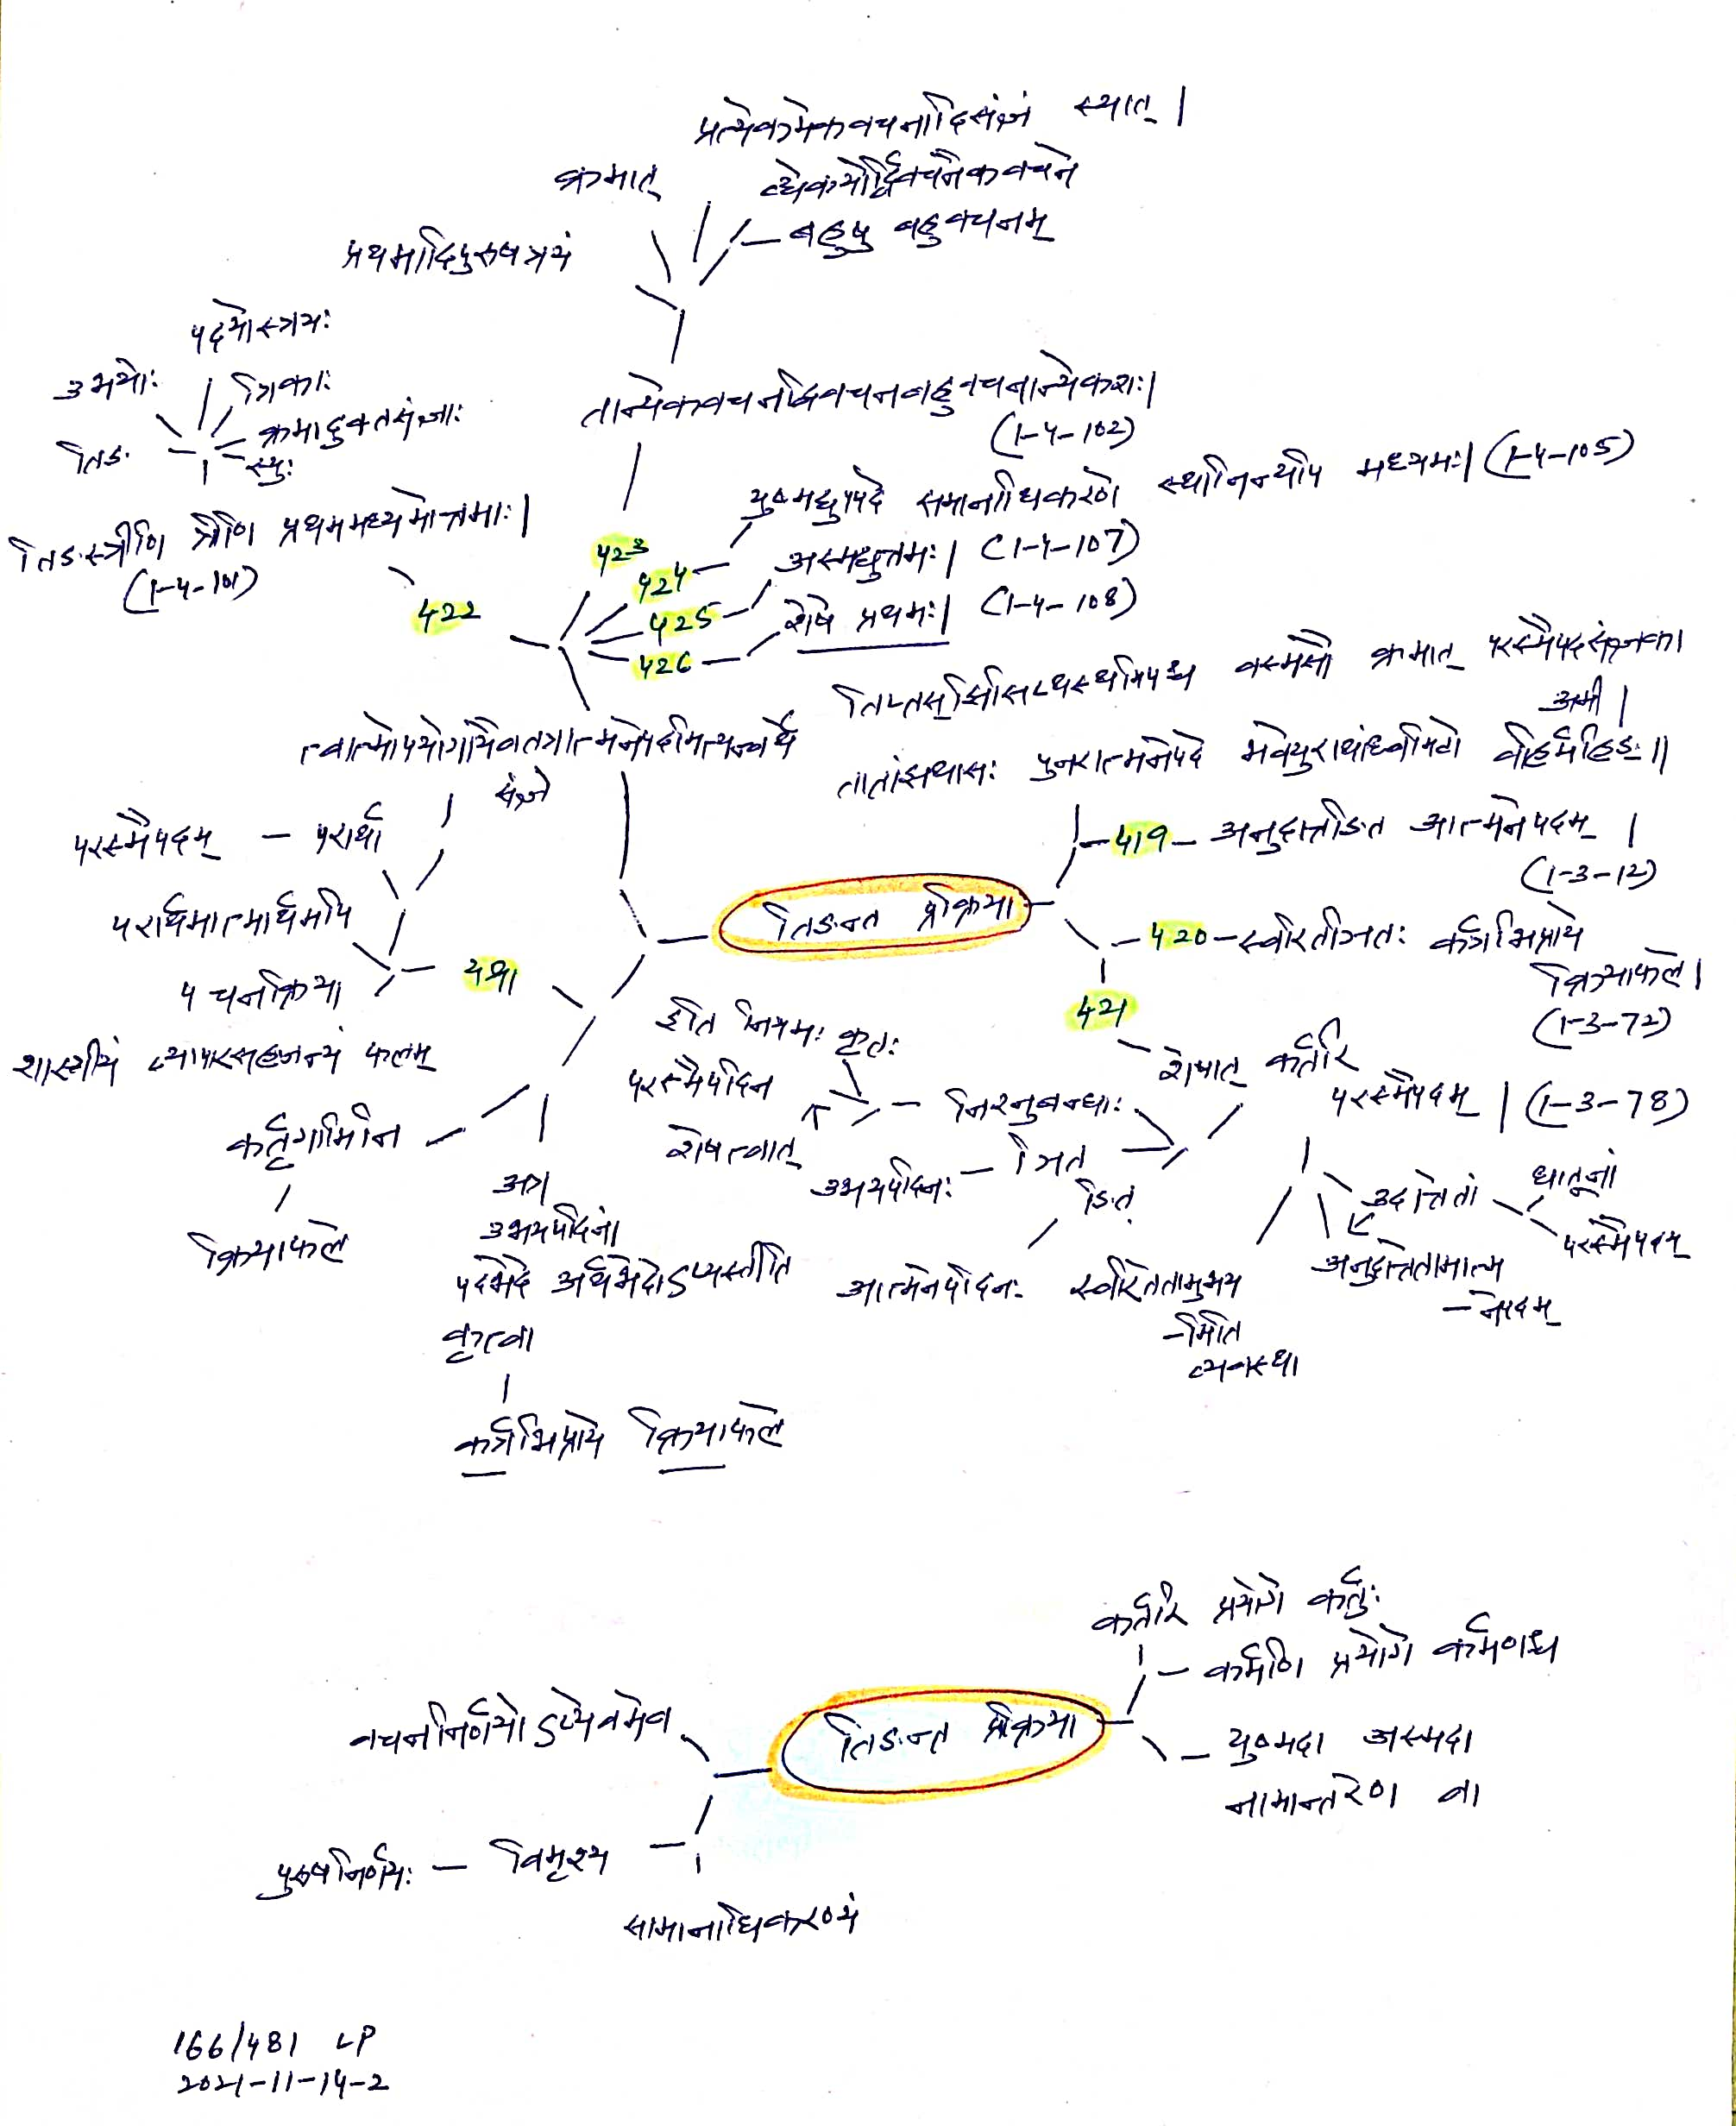 प्रत्येकमेकवचनादिसंज्ञं स्यात् |
क्रमात्
द्व्येकयोर्द्विवचनैकवचने
बहुषु बहुवचनम्
प्रथमादिपुरुषत्रयं
पदयोस्त्रयः
उभयोः
त्रिकाः
क्रमादुक्तसंज्ञाः
तिङः
स्युः
तान्येकवचनद्विवचनबहुवचनान्येकशः|
(1-4-102)
तिङस्त्रीणि त्रीणि प्रथममध्यमोत्तमाः|
(1-4-101)
422
423
424
युष्मद्युपपदे समानाधिकरणे स्थानिन्यपि मध्यमः| (1-4-105)
425
अस्मद्युत्तमः| (1-4-107)
426
शेषे प्रथमः| (1-4-108)
तिप्तस्झिसिप्थस्थमिपश्च वस्मसौ क्रमात् परस्मैपदसंज्ञका
अमी |
तातांझथासः पुनरात्मनेपदे भवेयुराथांध्वमिटो वहिर्महिङः ||
त्वात्मोपयोगायैवतत्रात्मनेपदमित्यन्वर्थे
संज्ञे
परस्मैपदम् - परार्था
परार्थमात्मार्थमपि
पचनक्रिया
यथा
शास्त्रीयं व्यापारसहजन्यं फलम्
कर्तृगामिनि
क्रियाफले
तिङन्त प्रक्रिया
419 - अनुदात्तङित आत्मनेपदम् |
(1-3-12)
420 - स्वरितञितः कर्त्रभिप्राये
क्रियाफले |
(1-3-72)
421
शेषात् कर्तरि
परस्मैपदम् | (1-3-78)
इति नियमः कृतः
परस्मैपदिन
शेषत्वात्
निरनुबन्धाः
उभयपदिनः - ञित
ङित्
आत्मनेपदिनः
स्वरितेतामुभय
-मिति
व्यवस्था
उदात्तेतां
धातूनां
परस्मैपदम्
अनुदात्तेतामात्म
- नेपदम्
अत्र
उभयपदिनां
पदभेदे अर्थभेदोऽप्यस्तीति
कृत्वा
कर्त्रभिप्राये क्रियाफले
कर्तरि प्रयोगे कर्तुः
कर्मणि प्रयोगे कर्मणश्च
तिङन्त प्रक्रिया
युष्मदा अस्मदा
नामान्तरेण वा
वचननिर्णयोऽप्येवमेव
पुरुषनिर्णयः - विमृश्य
सामानाधिकरण्यं
166/481 LP
2021-11-14-2